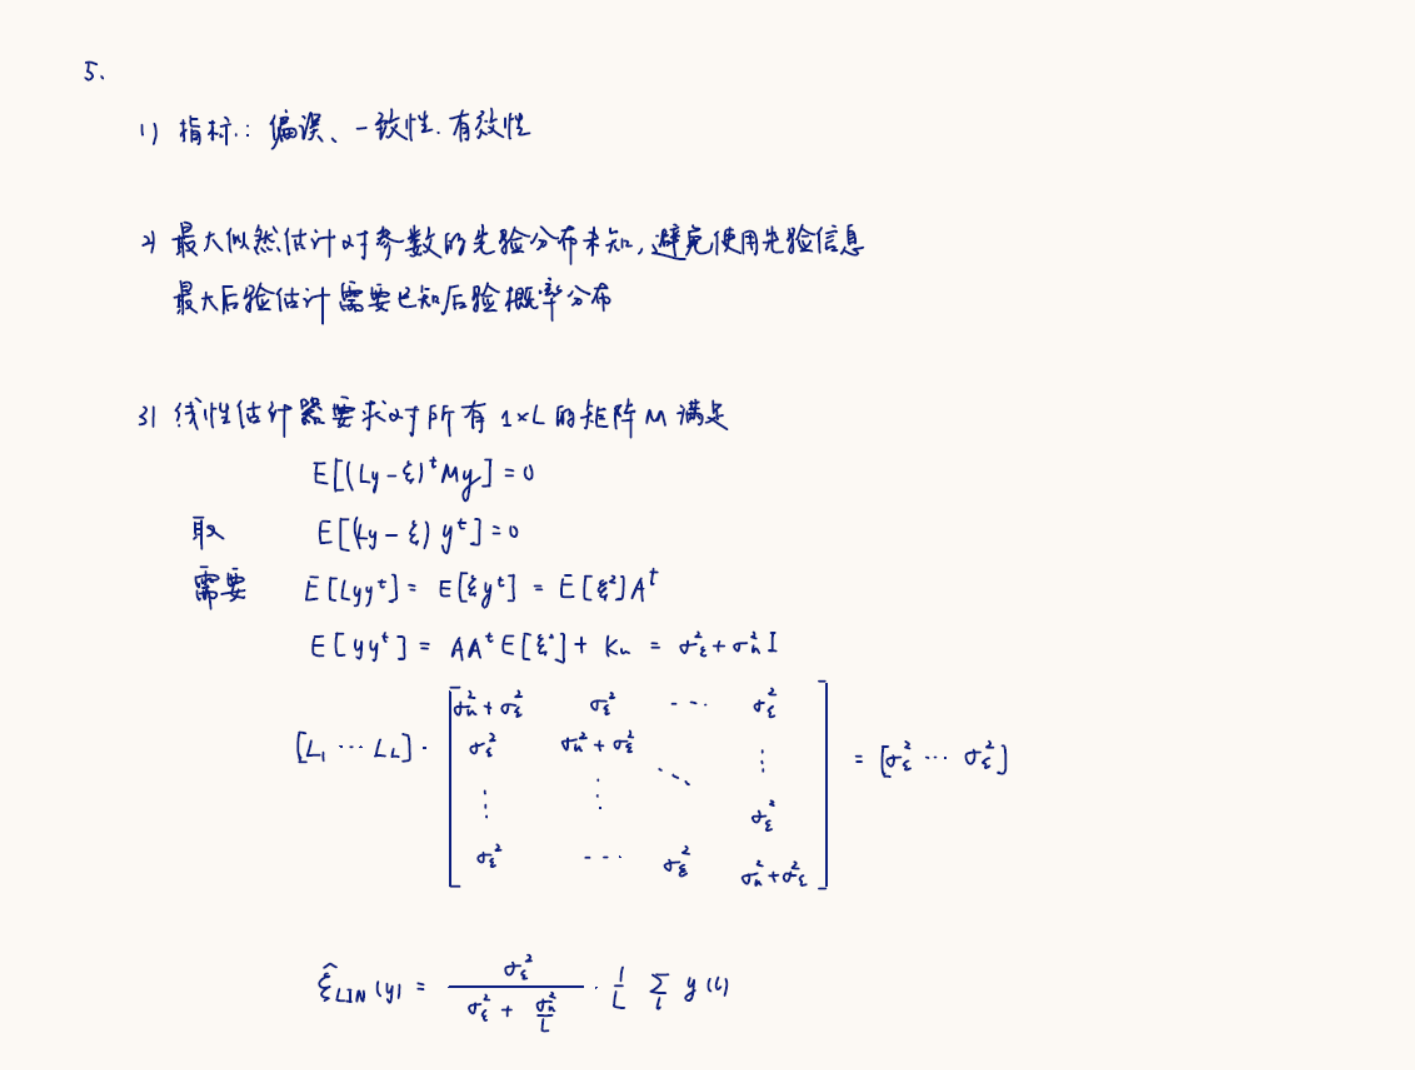 5.
1) 指标：偏误、一致性.有效性
2) 最大似然估计对参数的先验分布未知,避免使用先验信息
最大后验估计需要已知后验概率分布
3) 线性估计器要求对所有 1×L 的矩阵 M 满足
E[(Ly-ξ)ᵗMy]=0
取 E[(Ly-ξ) yᵗ]=0
需要 E[Lyyᵗ]= E[ξyᵗ] = E[ξ²]Aᵗ
E[yyᵗ] = AAᵗE[ξ²]+ Kₙ = σ_ξ²+σₙ²I
[L₁ ⋯ L_L]·
σₙ²+σ_ξ² σ_ξ² ⋯ σ_ξ²
σ_ξ² σₙ²+σ_ξ² ⋮
⋮ ⋮ ⋱ σ_ξ²
σ_ξ² ⋯ σ_ξ² σₙ²+σ_ξ²
= [σ_ξ² ⋯ σ_ξ²]
ξ̂_LIN(y) = σ_ξ² / (σ_ξ² + σₙ²/L) · 1/L Σ_l y(l)